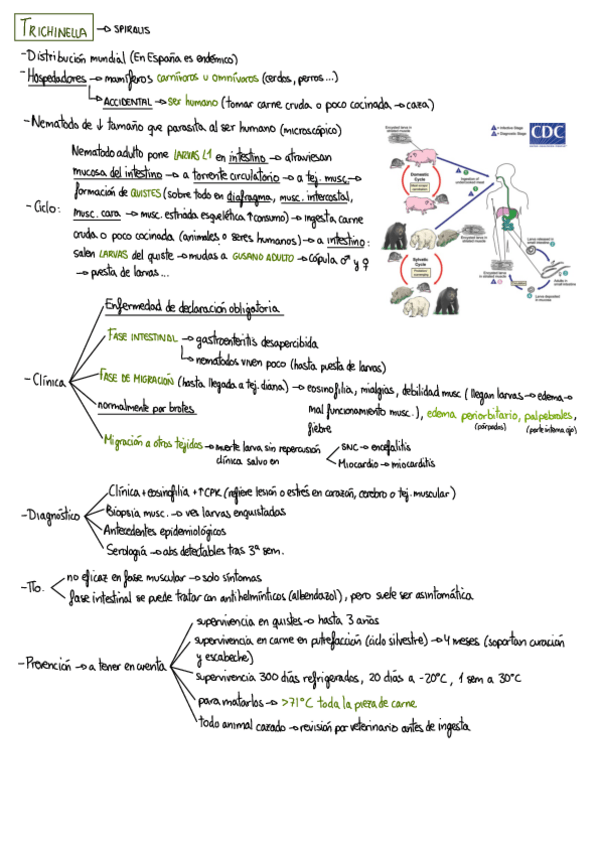 TRICHINELLA → SPIRALIS
- Distribución mundial (En España es endémico)
- Hospedadores → mamíferos carnívoros u omnívoros (cerdos, perros...)
↳ ACCIDENTAL → ser humano (tomar carne cruda o poco cocinada → caza)
- Nematodo de ↓ tamaño que parasita al ser humano (microscópico)
- Ciclo:
Nematodo adulto pone LARVAS L1 en intestino → atraviesan
mucosa del intestino → a torrente circulatorio → a tej. musc →
formación de QUISTES (sobre todo en diafragma, musc. intercostal,
musc. cara → musc. estriada esquelética, ↑consumo) → Ingesta carne
cruda o poco cocinada (animales o seres humanos) → a intestino:
salen LARVAS del quiste → mudas a GUSANO ADULTO → Cópula ♂ y ♀
→ puesta de larvas...
▲ = Infective Stage
▲ = Diagnostic Stage
CDC
Encysted larva in striated muscle
Domestic Cycle
Ingestion of undercooked meat
Encysted larva in striated muscle
Sylvatic Cycle
Larva released in small intestine
Adults in small intestine
Encysted larva in striated muscle
Larva deposited in mucosa
- Clínica
Enfermedad de declaración obligatoria
FASE INTESTINAL → gastroenteritis desapercibida
↳ nematodos viven poco (hasta puesta de larvas)
FASE DE MIGRACIÓN (hasta llegada a tej. diana) → eosinofilia, mialgias, debilidad musc (llegan larvas → edema →
normalmente por brotes
mal funcionamiento musc.), edema periorbitario, palpebrales,
(párpados)
fiebre
Migración a otros tejidos → muerte larva sin repercusión
clínica salvo en
SNC → encefalitis
Miocardio → miocarditis
- Diagnóstico
Clínica + eosinofilia + ↑CPK (refiere lesión o estrés en corazón, cerebro o tej. muscular)
Biopsia musc. → ves larvas enquistadas
Antecedentes epidemiológicos
Serología → abs detectables tras 3ª sem.
- Tto.
no eficaz en fase muscular → solo síntomas
fase intestinal se puede tratar con antihelmínticos (albendazol), pero suele ser asintomática
- Prevención → a tener en cuenta
supervivencia en quistes → hasta 3 años
supervivencia en carne en putrefacción (ciclo silvestre) → 4 meses (soportan curación
y escabeche)
supervivencia 300 días refrigerados, 20 días a -20°C, 1 sem a 30°C
para matarlos → >71°C toda la pieza de carne
todo animal cazado → revisión por veterinario antes de ingesta